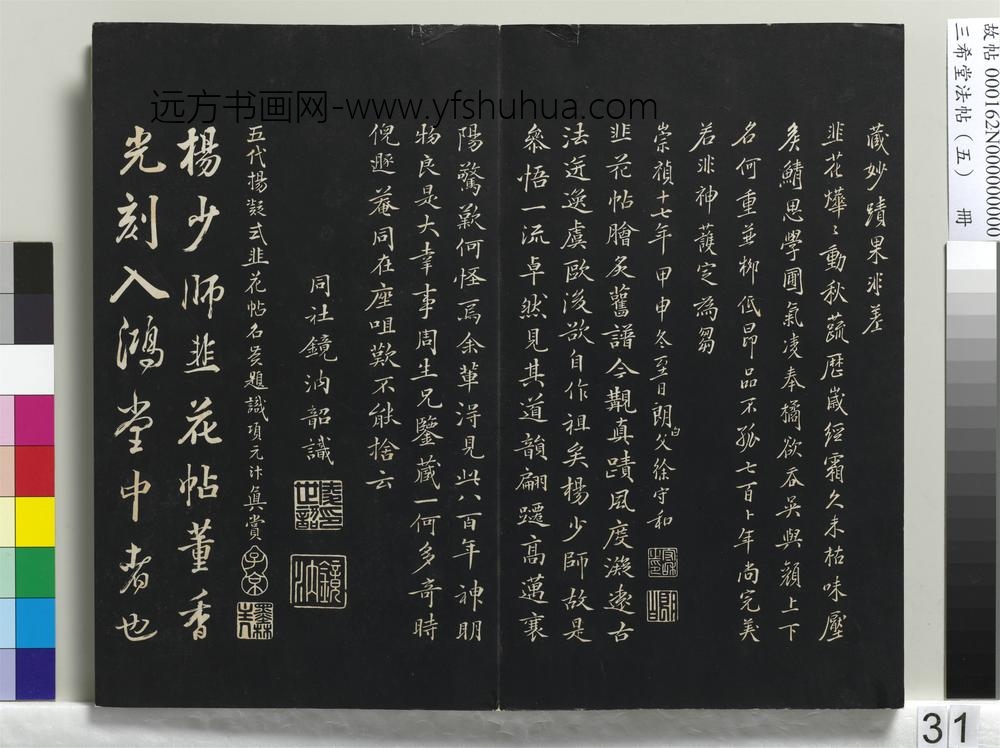 藏妙蹟果非差
韭花燁々動秋蔬歷歲經霜久未枯味壓
矦鯖思學圃氣凌奉橘欲吞吳與顏上下
名何重並柳低昂品不孤七百卜年尚完美
若非神護定為芻
崇禎十七年甲申冬至日朗久徐守和
白
韭花帖膾炙舊譜今觀真蹟風度凝遠古
法迸逸虞歐後欲自作祖矣楊少師故是
參悟一流卓然見其道韻翩躚高邁襄
陽驚歎何怪焉余輩得見此八百年神明
物良是大幸事周生兄鑒藏一何多奇時
倪遯菴同在座咀歎不能捨云
同社鏡汭韶識
五代楊凝式韭花帖名賢題識項元汴真賞
子京
墨林
楊少師韭花帖董香
光刻入鴻堂中者也
远方书画网-www.yfshuhua.com
故帖 000162N000000000
三希堂法帖（五） 冊
31